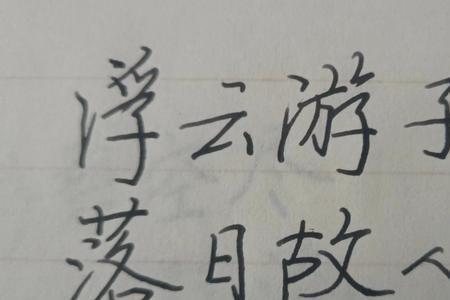 浮云游子
落日故人